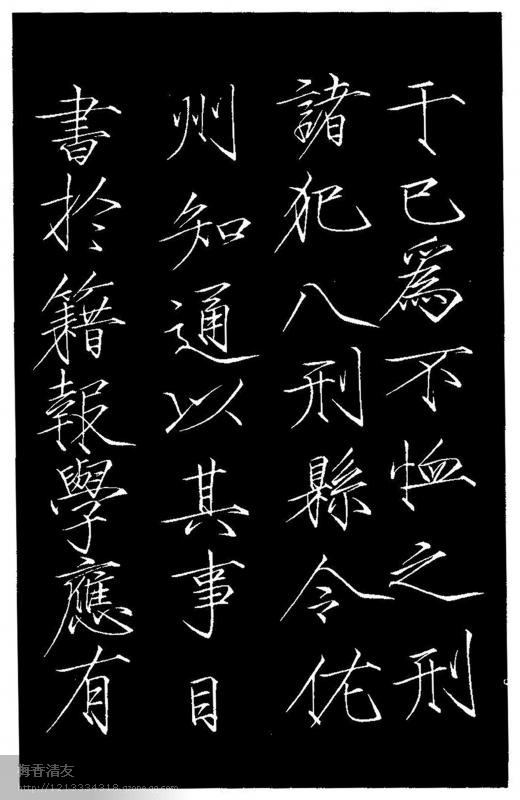 于己為不恤之刑
諸犯八刑縣令佐
州知通以其事目
書於籍報學應有
梅香清友
http://1213334318.qzone.qq.com